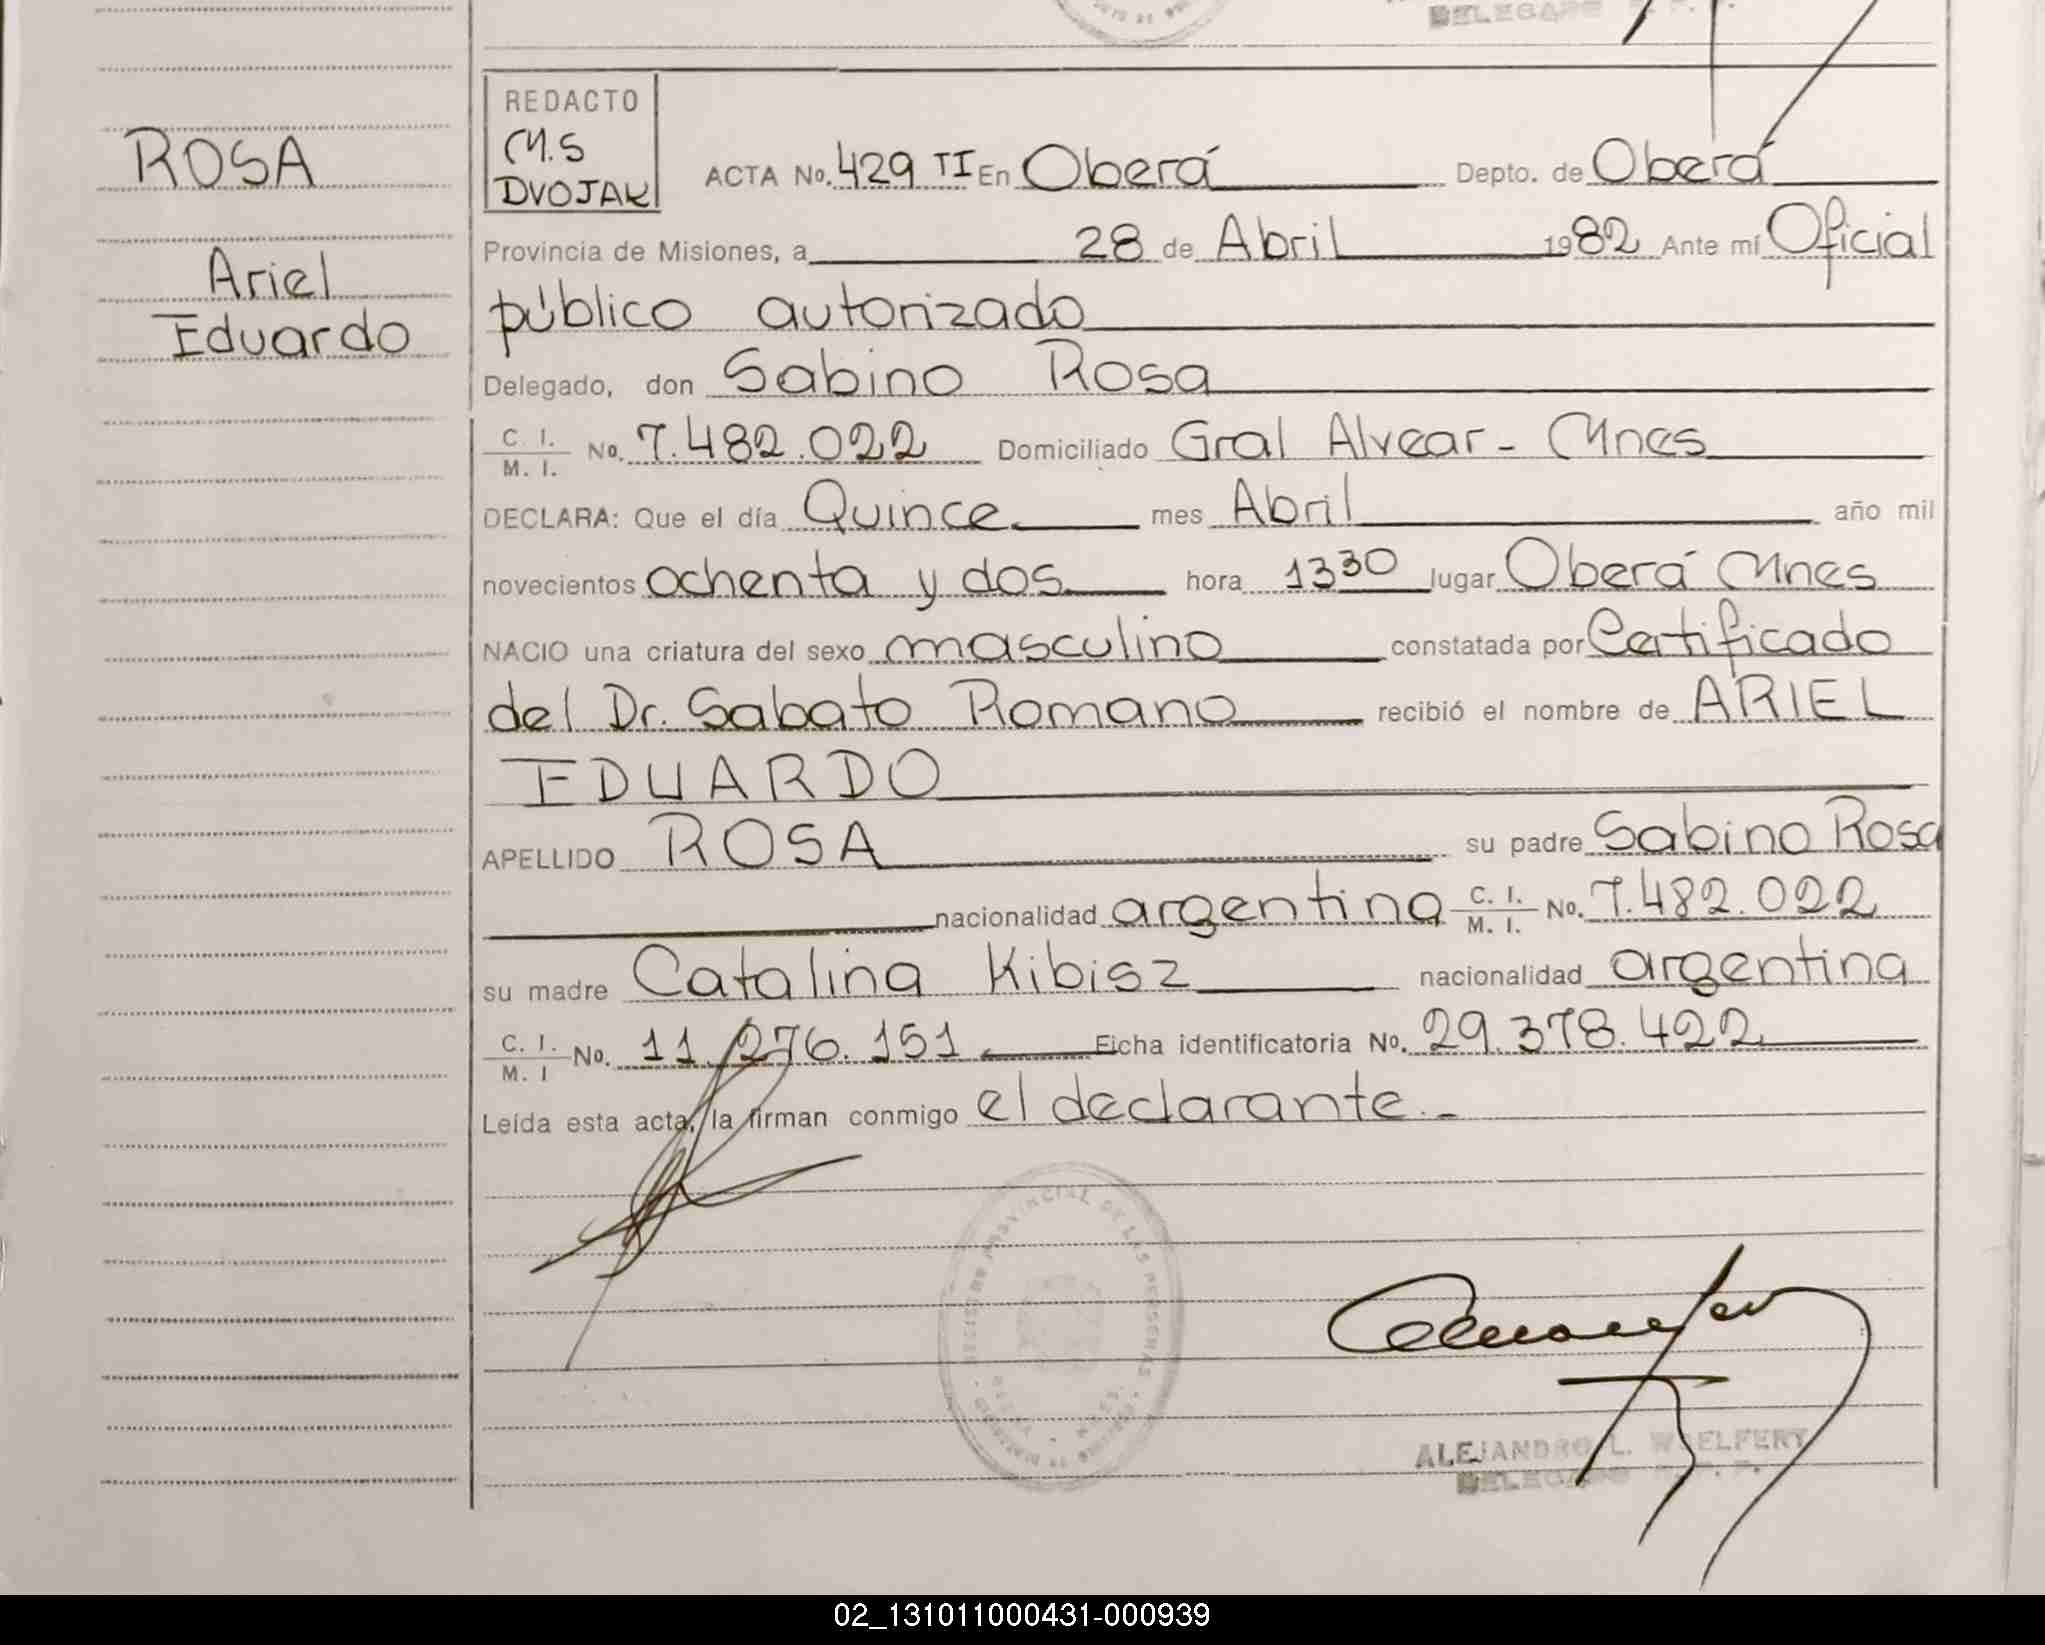 DELEGADO R. P. P.
REDACTO
M.S
DVOJAK
ROSA
Ariel
Eduardo
ACTA No. 429 TI En Oberá Depto. de Oberá
Provincia de Misiones, a 28 de Abril 1982 Ante mí Oficial
público autorizado
Delegado, don Sabino Rosa
C. I. / M. I. No. 7.482.022 Domiciliado Gral Alvear - Mnes
DECLARA: Que el día Quince mes Abril año mil
novecientos ochenta y dos hora 13 30 lugar Oberá Mnes
NACIO una criatura del sexo masculino constatada por Certificado
del Dr. Sabato Romano recibió el nombre de ARIEL
EDUARDO
APELLIDO ROSA su padre Sabino Rosa
nacionalidad argentina C. I. / M. I. No. 7.482.022
su madre Catalina Kibisz nacionalidad argentina
C. I. / M. I No. 11.276.151 Ficha identificatoria No. 29.378.422
Leída esta acta, la firman conmigo el declarante.-
REGISTRO PROVINCIAL DE LAS PERSONAS
ALEJANDRO L. WOELFERT
DELEGADO R. P. P.
02_131011000431-000939